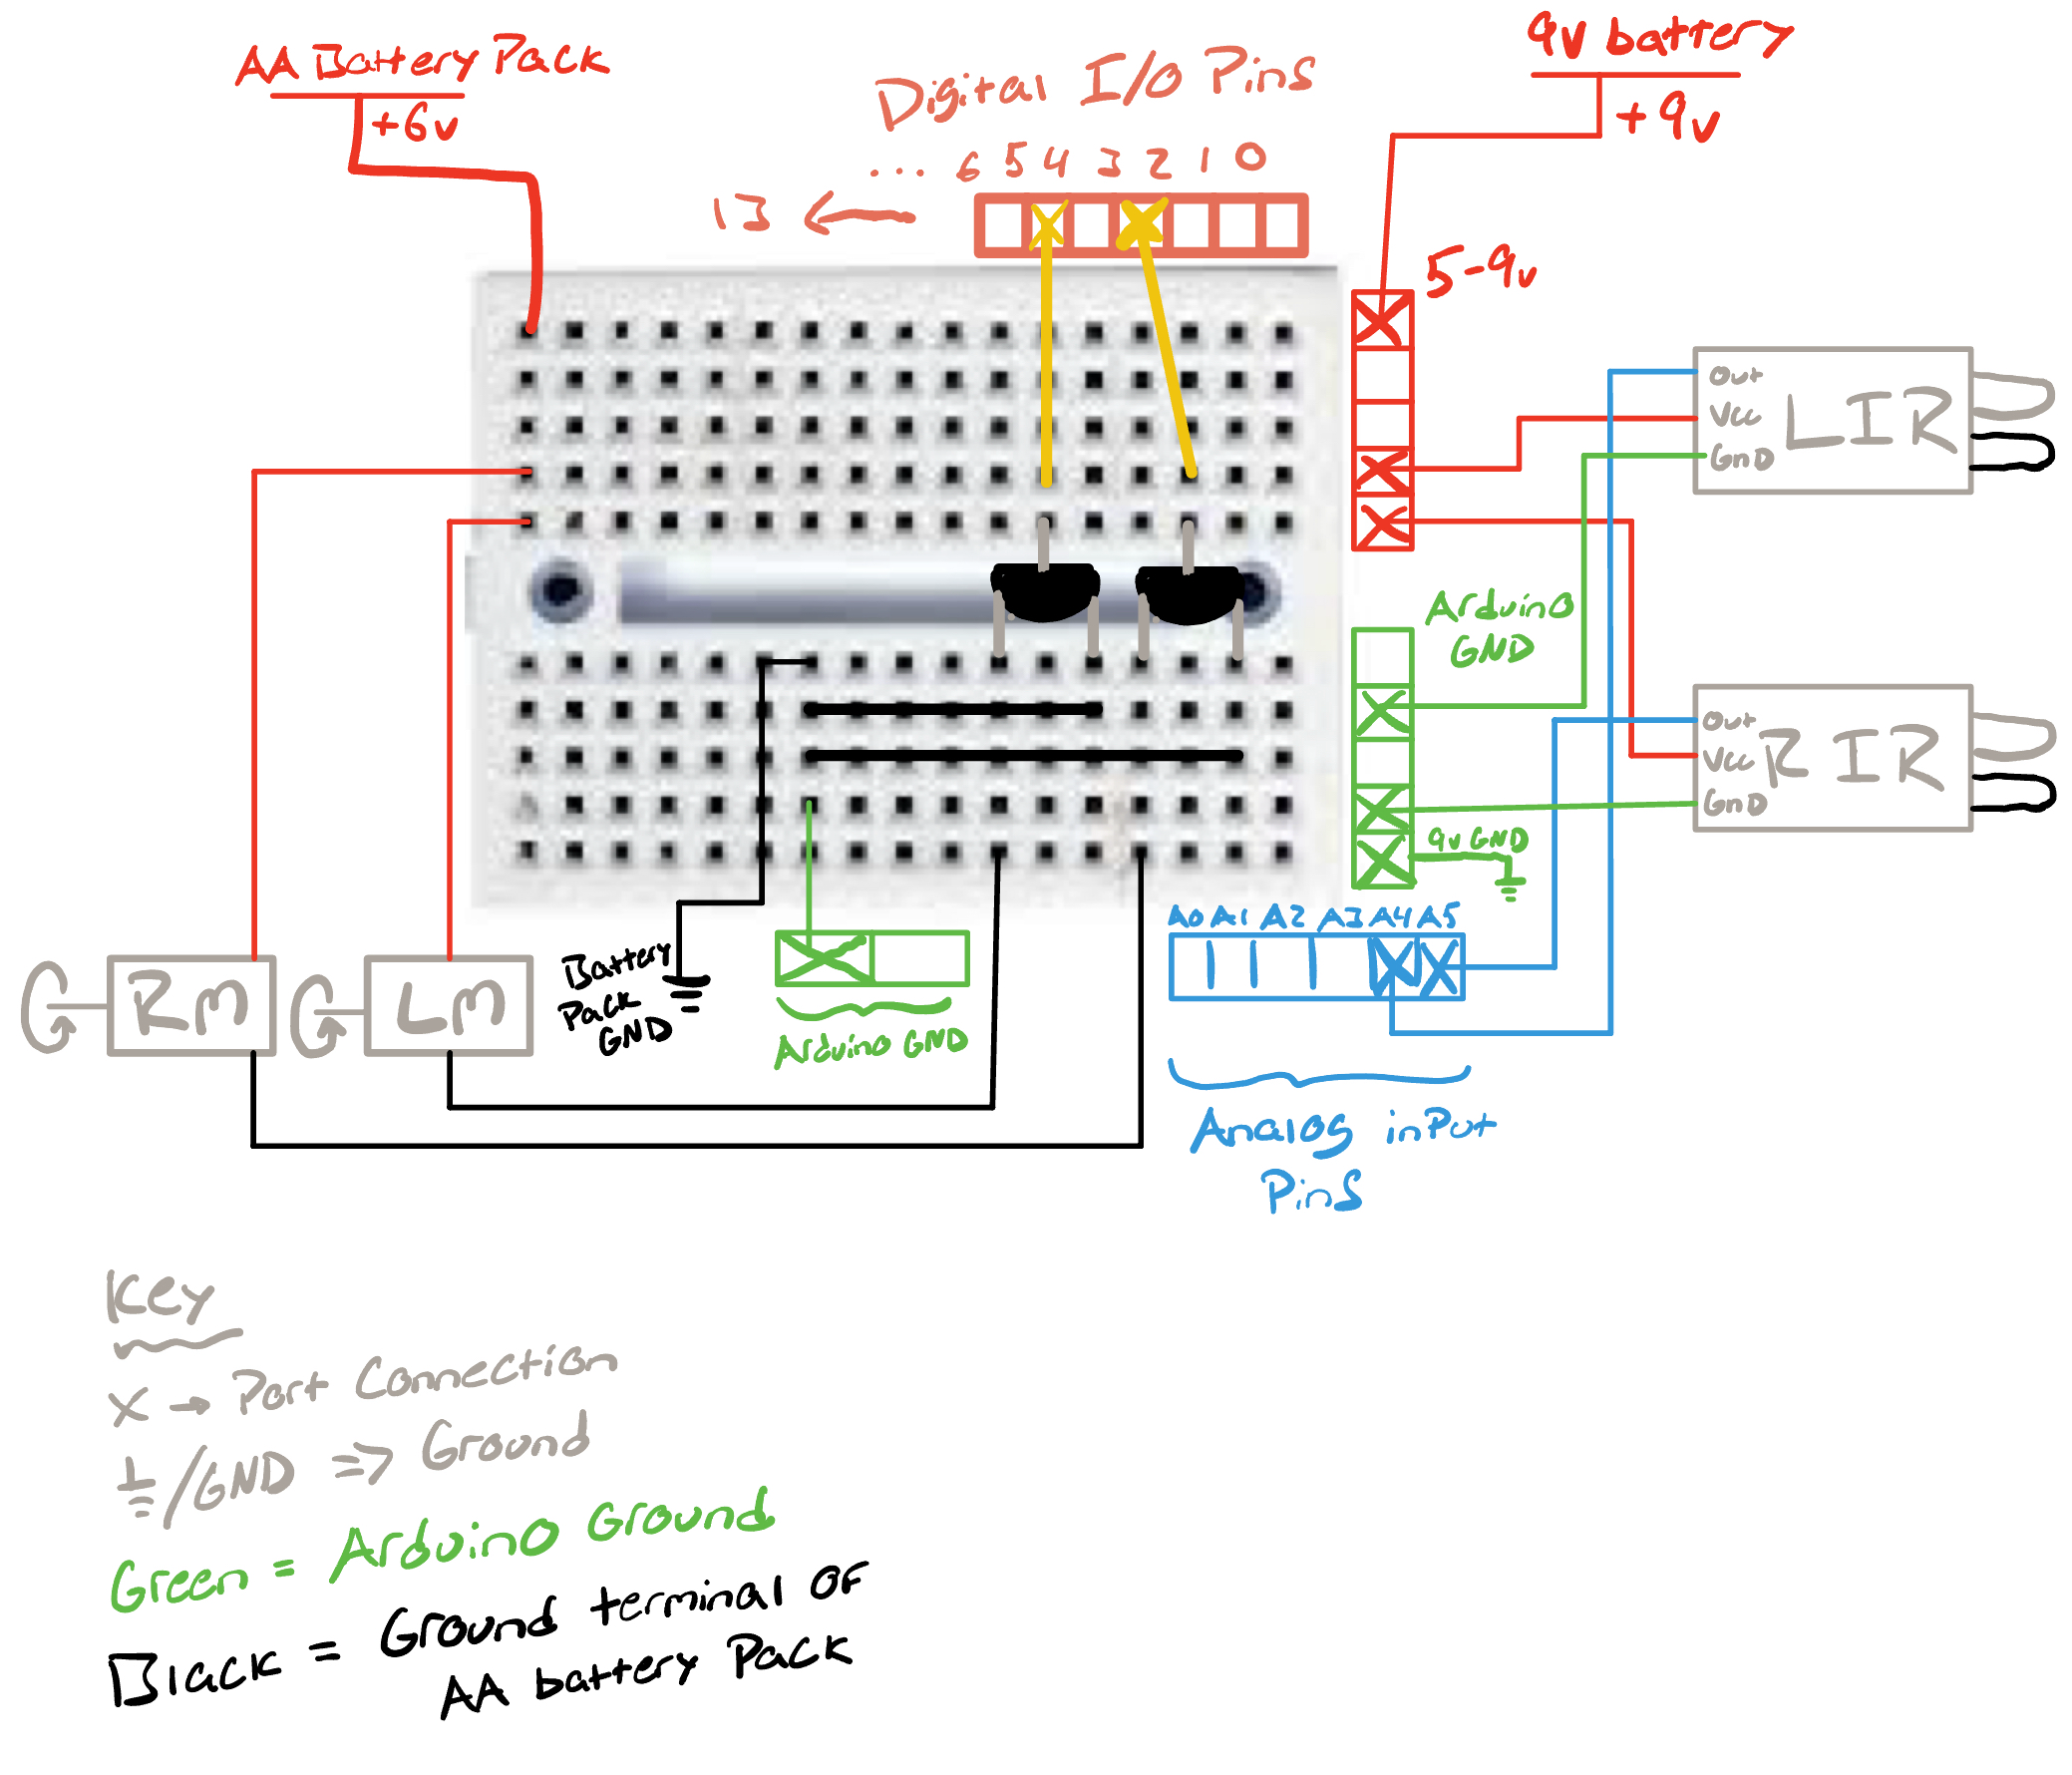 AA Battery Pack
+6v
Digital I/O Pins
... 6 5 4 3 2 1 0
13 ←
9v battery
+9v
5-9v
Out
Vcc
GnD
LIR
Arduino
GND
Out
Vcc
GnD
RIR
9v GND
A0 A1 A2 A3 A4 A5
Analog inPut
Pins
RM
LM
Battery
Pack
GND
Arduino GND
Key
X → Port Connection
⏚/GND => Ground
Green = Arduino Ground
Black = Ground terminal OF
AA battery Pack